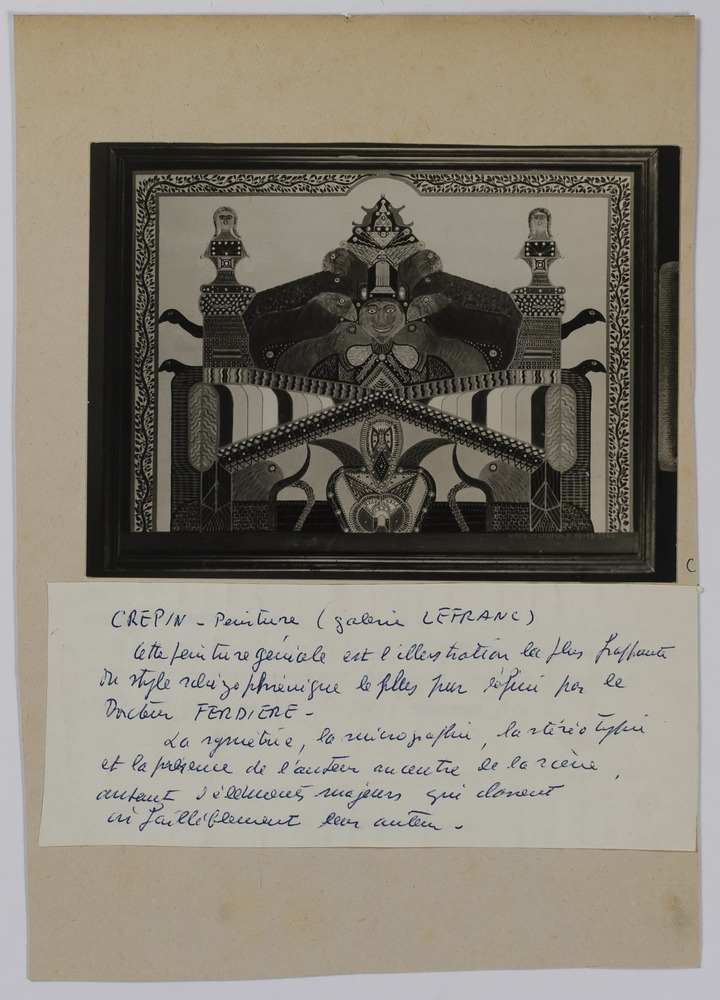 C
CREPIN - Peinture (galerie LEFRANC)
Cette peinture géniale est l'illustration la plus frappante
du style schizophrénique le plus pur défini par le
Docteur FERDIERE -
La symétrie, la micrographie, la stéréotypie
et la présence de l'auteur au centre de la scène,
autant d'éléments majeurs qui classent
infailliblement leur auteur.